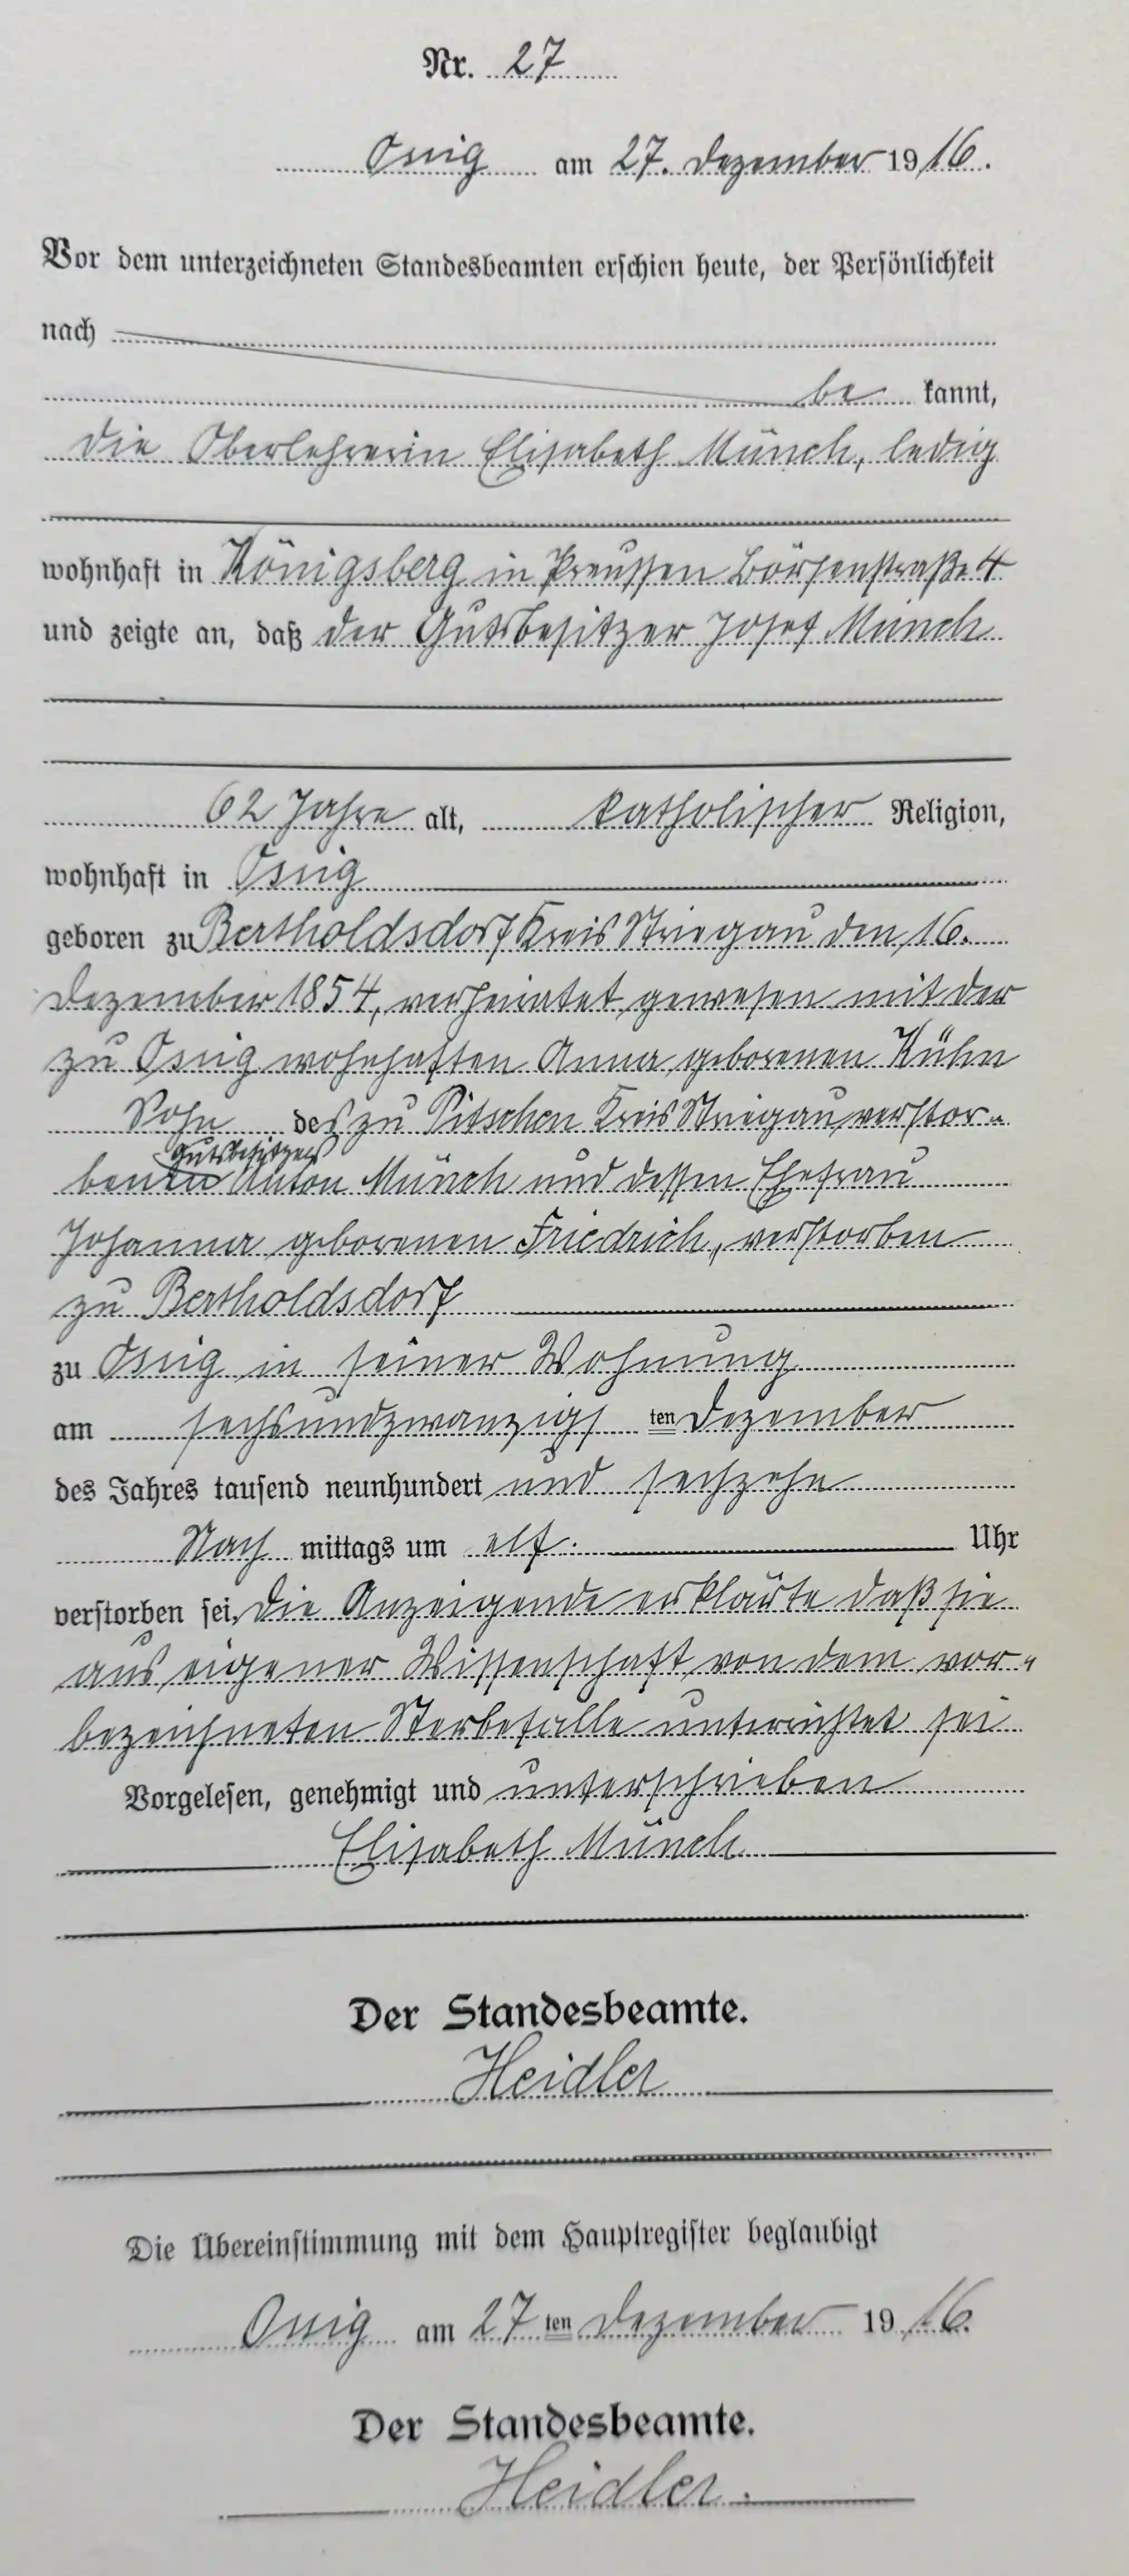 Nr. 27
Ossig am 27. Dezember 1916.
Vor dem unterzeichneten Standesbeamten erschien heute, der Persönlichkeit
nach
be kannt,
die Oberlehrerin Elisabeth Münch, ledig
wohnhaft in Königsberg in Preussen Börsenstraße 4
und zeigte an, daß der Gutsbesitzer Josef Münch
62 Jahre alt, katholischer Religion,
wohnhaft in Ossig
geboren zu Bertholdsdorf Kreis Striegau den 16.
Dezember 1854, verheiratet gewesen mit der
zu Ossig wohnhaften Anna geborenen Kühn
Sohn des zu Pitschen Kreis Striegau verstor-
Gutsbesitzers
benen Anton Münch und dessen Ehefrau
Johanna geborenen Friedrich, verstorben
zu Bertholdsdorf
zu Ossig in seiner Wohnung
am sechsundzwanzigs ten Dezember
des Jahres tausend neunhundert und sechzehn
Nach mittags um elf. Uhr
verstorben sei. Die Anzeigende erklärte daß sie
aus eigener Wissenschaft von dem vor-
bezeichneten Sterbefalle unterrichtet sei
Vorgelesen, genehmigt und unterschrieben
Elisabeth Münch
Der Standesbeamte.
Heidler
Die Übereinstimmung mit dem Hauptregister beglaubigt
Ossig am 27 ten Dezember 1916.
Der Standesbeamte.
Heidler.